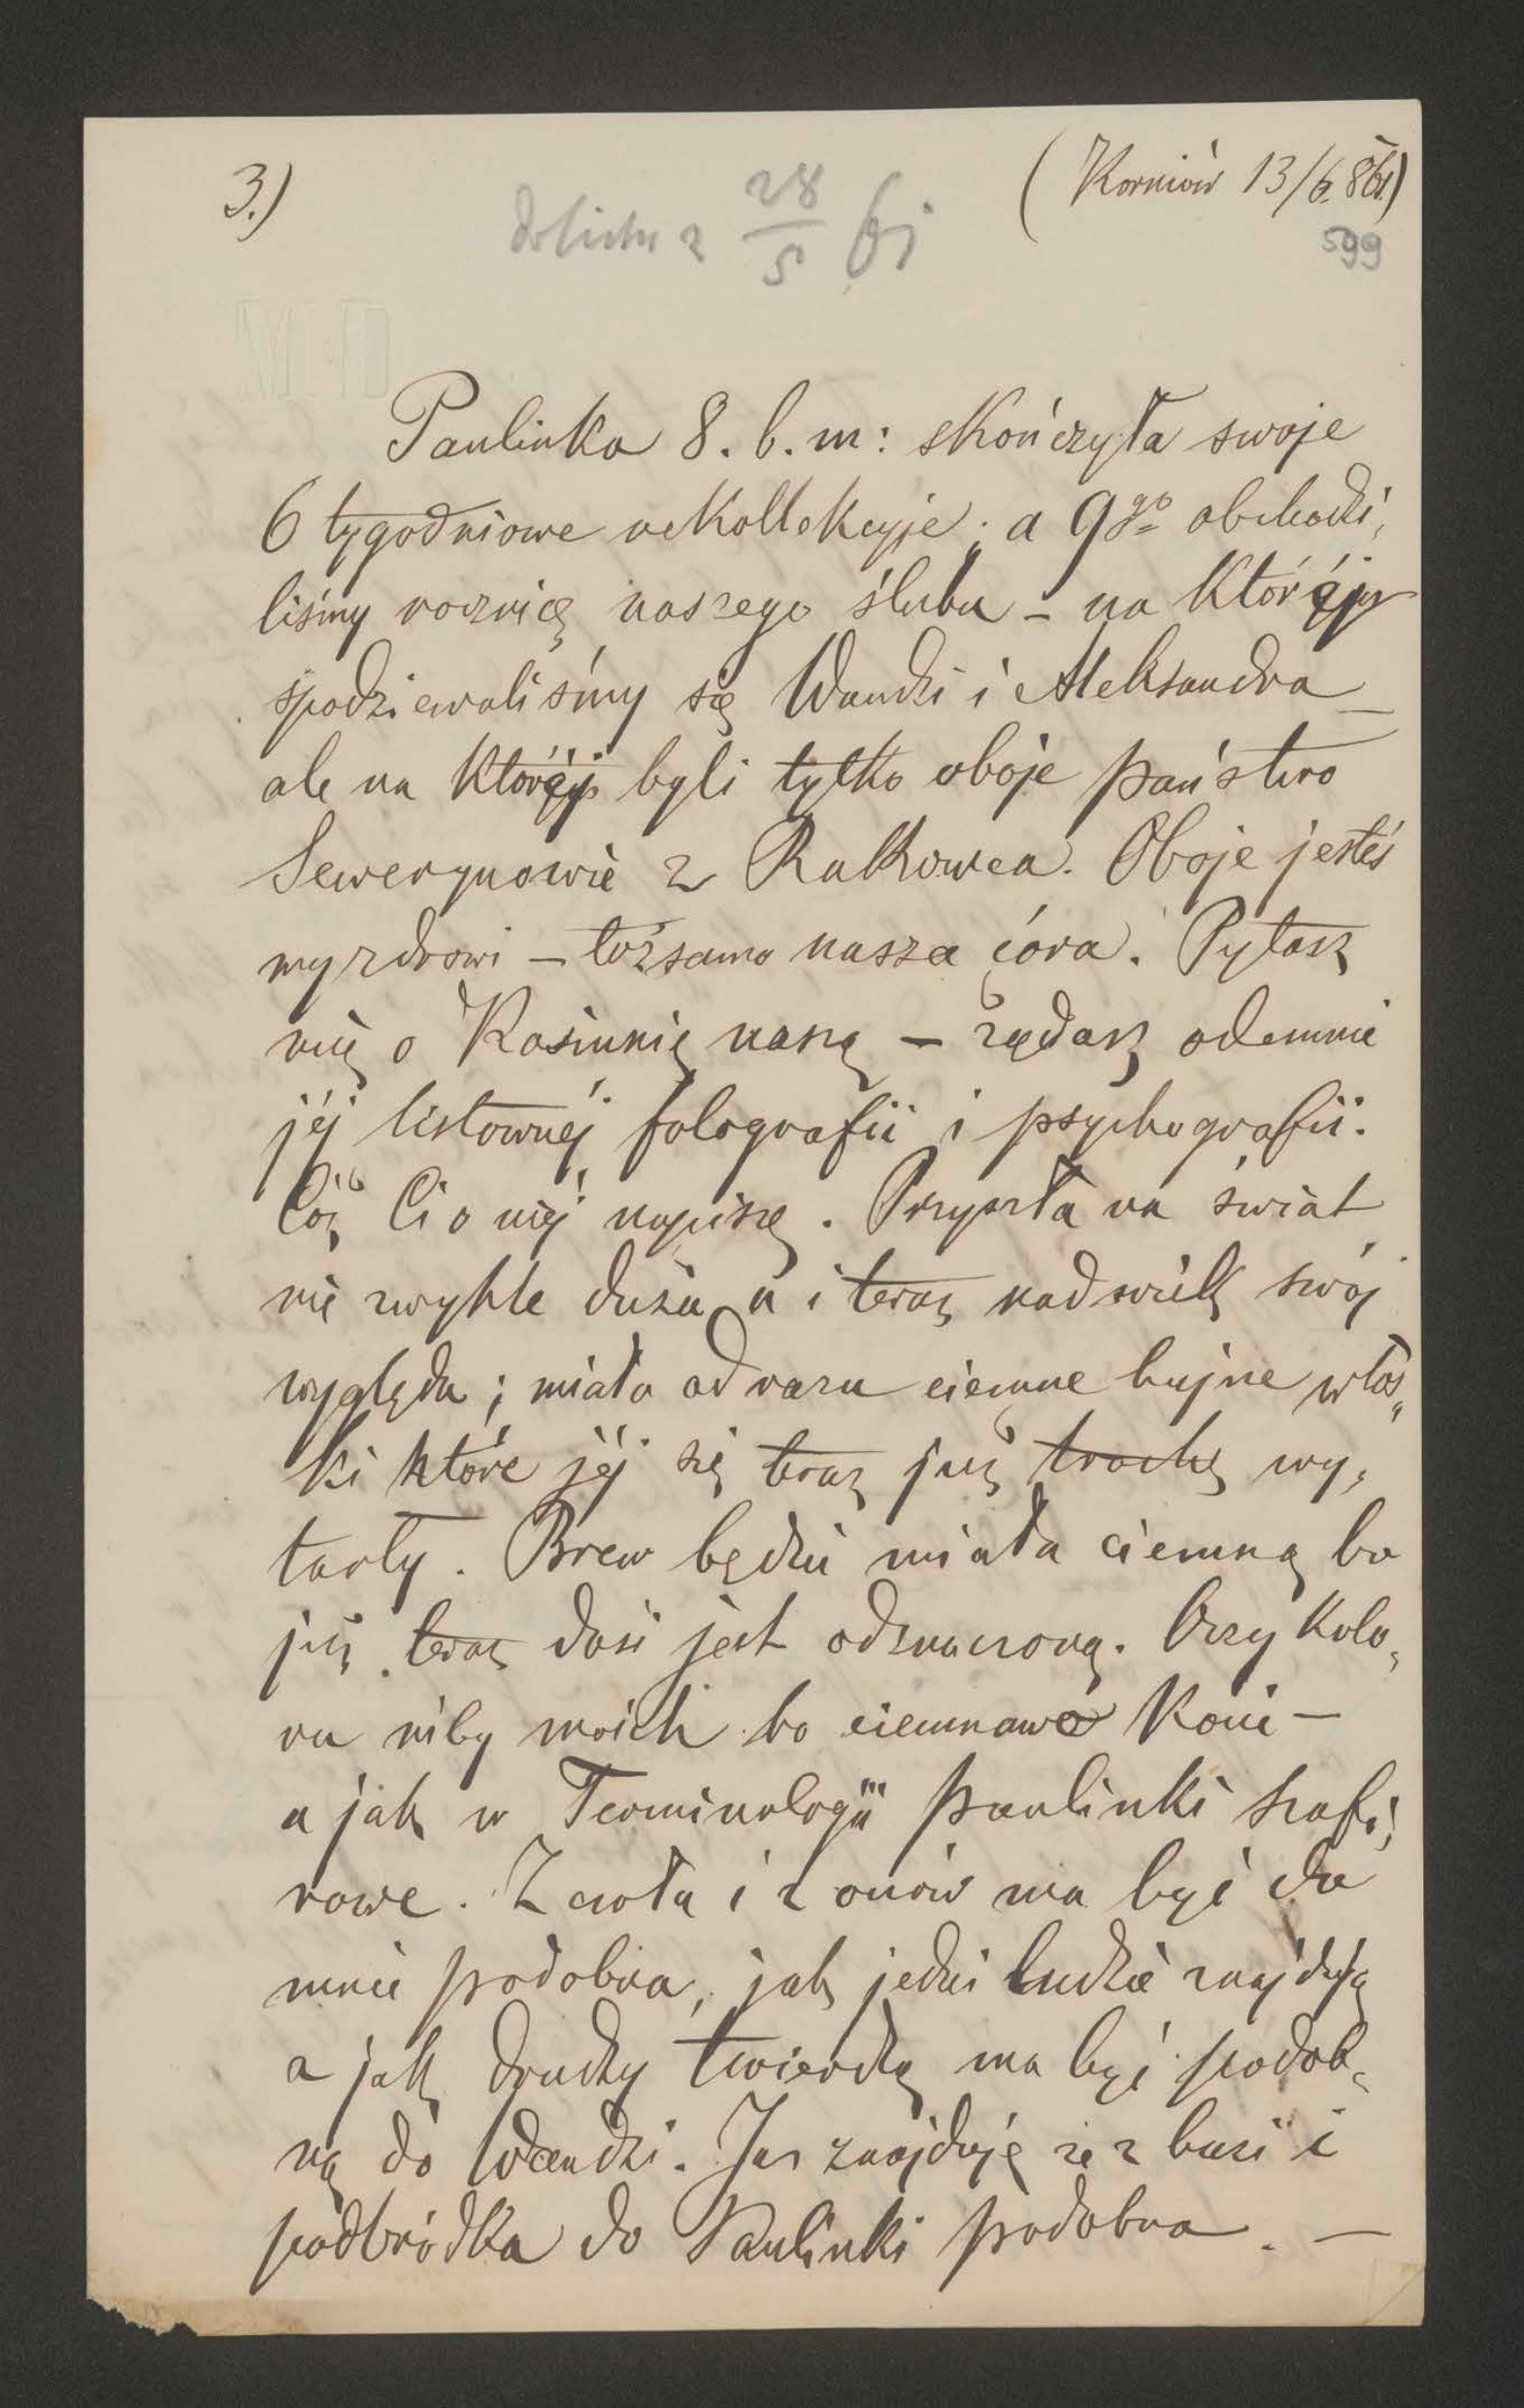 3.)
(Korniów 13/6. 861.)
do listu z 28/5 61
599
Paulinka 8. b. m: skończyła swoje
6 tygodniowe rekollekcyje; a 9go obchodzi„
liśmy rocznicę naszego ślubu – na którąj
spodziewaliśmy się Wandzi i Aleksandra –
ale na którąj byli tylko oboje państwo
Sewerynowie z Rakowca. Oboje jesteś
my zdrowi – tożsamo nasza córa. Pytasz
się o Kasiunię naszą – żądasz odemnie
jéj listownéj fotografii i psychografii.
Cóż Ci o niéj napiszę. Przyszła na świat
nie zwykle duża a i teraz nad wiek swój
wygląda; miała od razu ciemne bujne włos„
ki które jéj się teraz już trochę wy„
tarły. Brew będzie miała ciemną bo
już teraz dość jest odznaczoną. Oczy kolo„
ru niby moich bo ciemnawe Koni –
a jak w Terminologii Paulinki szafi„
rowe. Z czoła i z oczów ma być do
mnie podobna, jak jedni ludzie znajdują
a jak drudzy twierdzą ma być podob„
ną do Wandzi. Ja znajduję że z buzi i
podbródka do Paulinki podobna. –